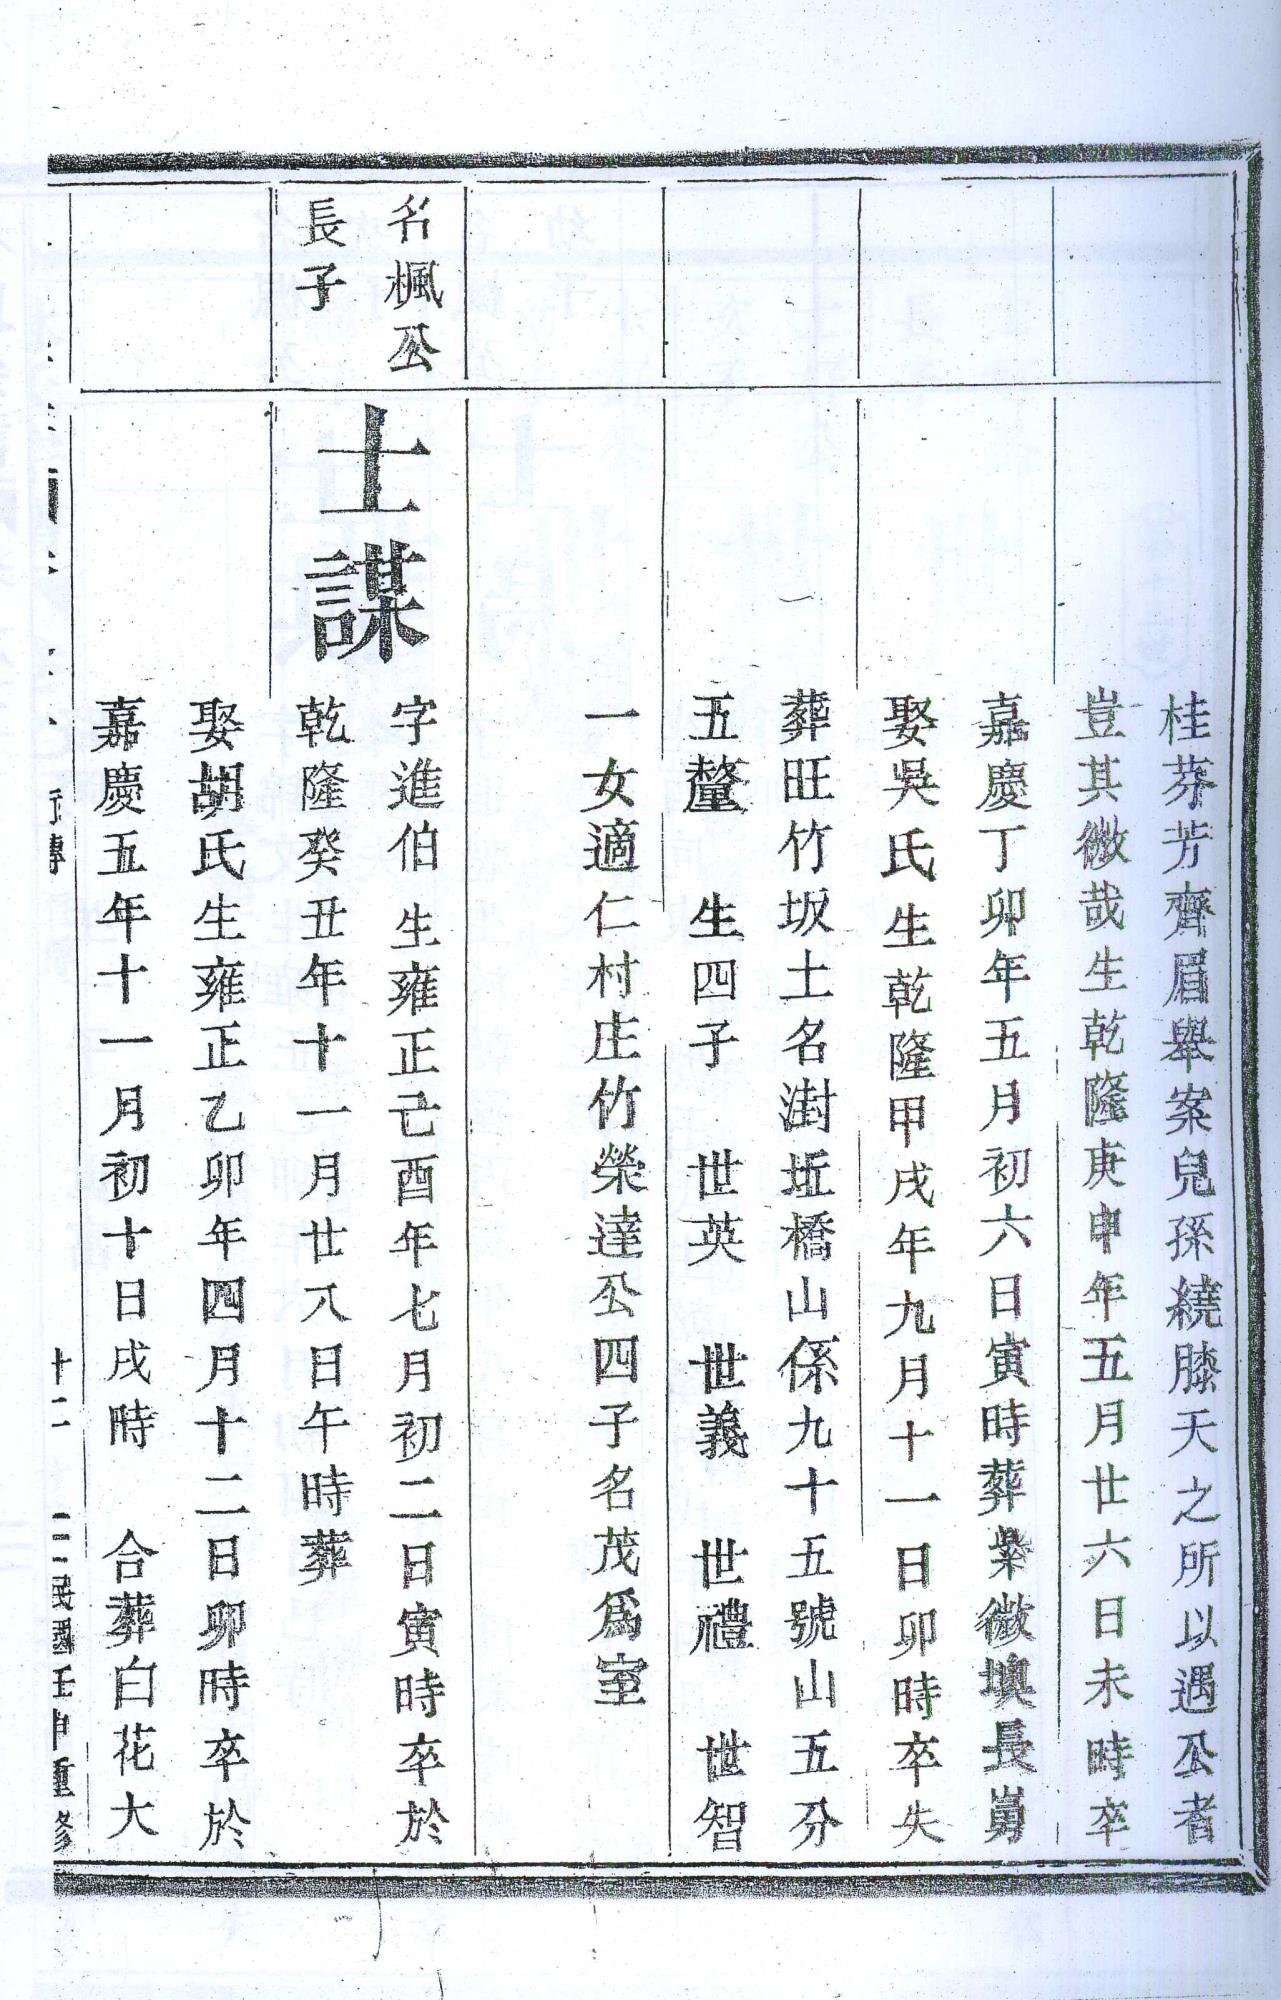 桂芬芳齊眉舉案兒孫繞膝天之所以遇公者
豈其微哉生乾隆庚申年五月廿六日未時卒
嘉慶丁卯年五月初六日寅時葬紫微墺長崗
娶吳氏生乾隆甲戌年九月十一日卯時卒失
葬旺竹坂土名澍坵橋山係九十五號山五分
五釐 生四子 世英 世義 世禮 世智
一女適仁村庄竹榮達公四子名茂爲室
名楓公
長子
士謀
字進伯生雍正己酉年七月初二日寅時卒於
乾隆癸丑年十一月廿八日午時葬
娶胡氏生雍正乙卯年四月十二日卯時卒於
嘉慶五年十一月初十日戌時 合葬白花大
行傳 十二 民國壬申重修